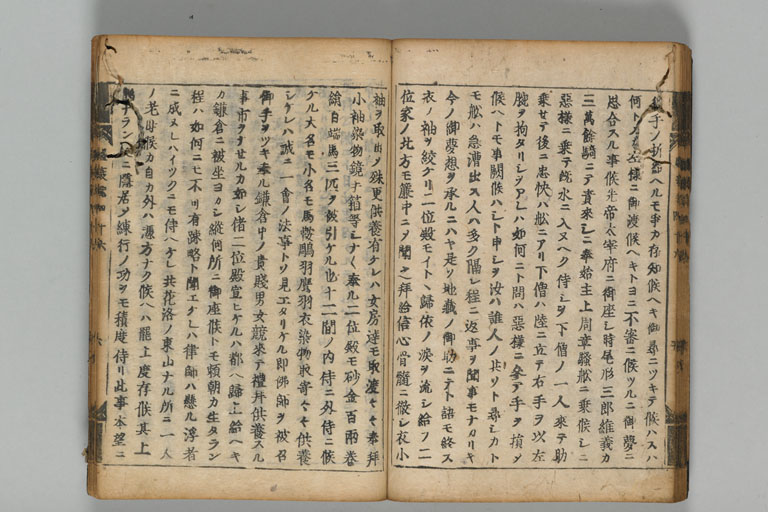 手ノ折
何トノ 左様ニ御渡候ヘキトヨニ不審ニ候ツルニ御夢ニ
思合スル事候先帝太宰府ニ御座シ時尾形三郎維義カ
三萬餘騎ニテ責来シニ奉始主上周章騒舩ニ乗候シニ
惡様ニ乗テ既水ニ入ヌヘク侍シヲ下僧ノ一人来テ助
乗セテ後ニ忠快ハ舩ニアリ下僧ハ陸ニ立テ右手ヲ以左
腕ヲ拘タリシヲアレハ如何ニト問ハ惡様ニ参テ手ヲ損タ
候ヘトモ事闕候ハシト申シヲ汝ハ誰人ノ共ソト尋シカト
モ舩ハ急漕出ス人ハ多ク隔シ程ニ返事ヲ聞事モナカリキ
今ノ御夢想ヲ承ルニハヤ是ソ地蔵ノ御助ニテト語モ終ス
衣ノ袖ヲ絞ケリ二位殿モイトヽ歸依ノ涙ヲ流シ給フ二
位家ノ北方モ簾中ニノ聞之拜給信心骨髓ニ徹シ衣小
袖ヲ取出ノ殊更供養有ケレハ女房達モ取渡々々奉拜
小袖染物鏡手箱等シナ〱奉ル二位殿モ砂金百兩巻
絹百端馬三匹ヲ被引ケル也十二間ノ内侍ニ外侍ニ候
ケル大名モ小名モ馬鞍鵰羽鷹羽衣染物取寄々々供養
シケレハ誠ニ一會ノ法事トソ見エタリケル即佛師ヲ被召
御手ヲツキ奉ル鎌倉中ノ貴賎男女競来テ禮拜供養スル
事市ヲナセルカ如シ偖二位殿宣ヒケルハ都ヘ歸上給ヘキ
カ鎌倉ニ被坐ヨカシ縦何所ニ御座候トモ頼朝カ生タラン
程ハ如何ニモ不可有疎略ト聞エケレハ律師ハ懸ル浮者
ニ成ヌレハイツクニモ侍ヘケレ共花洛ノ東山ナル所ニ一人
ノ老母候カ自カ外ハ憑方ナク候ヘハ罷上度存候其上
ニ隱居ノ練行ノ功ヲモ積度侍リ此事本望ニ